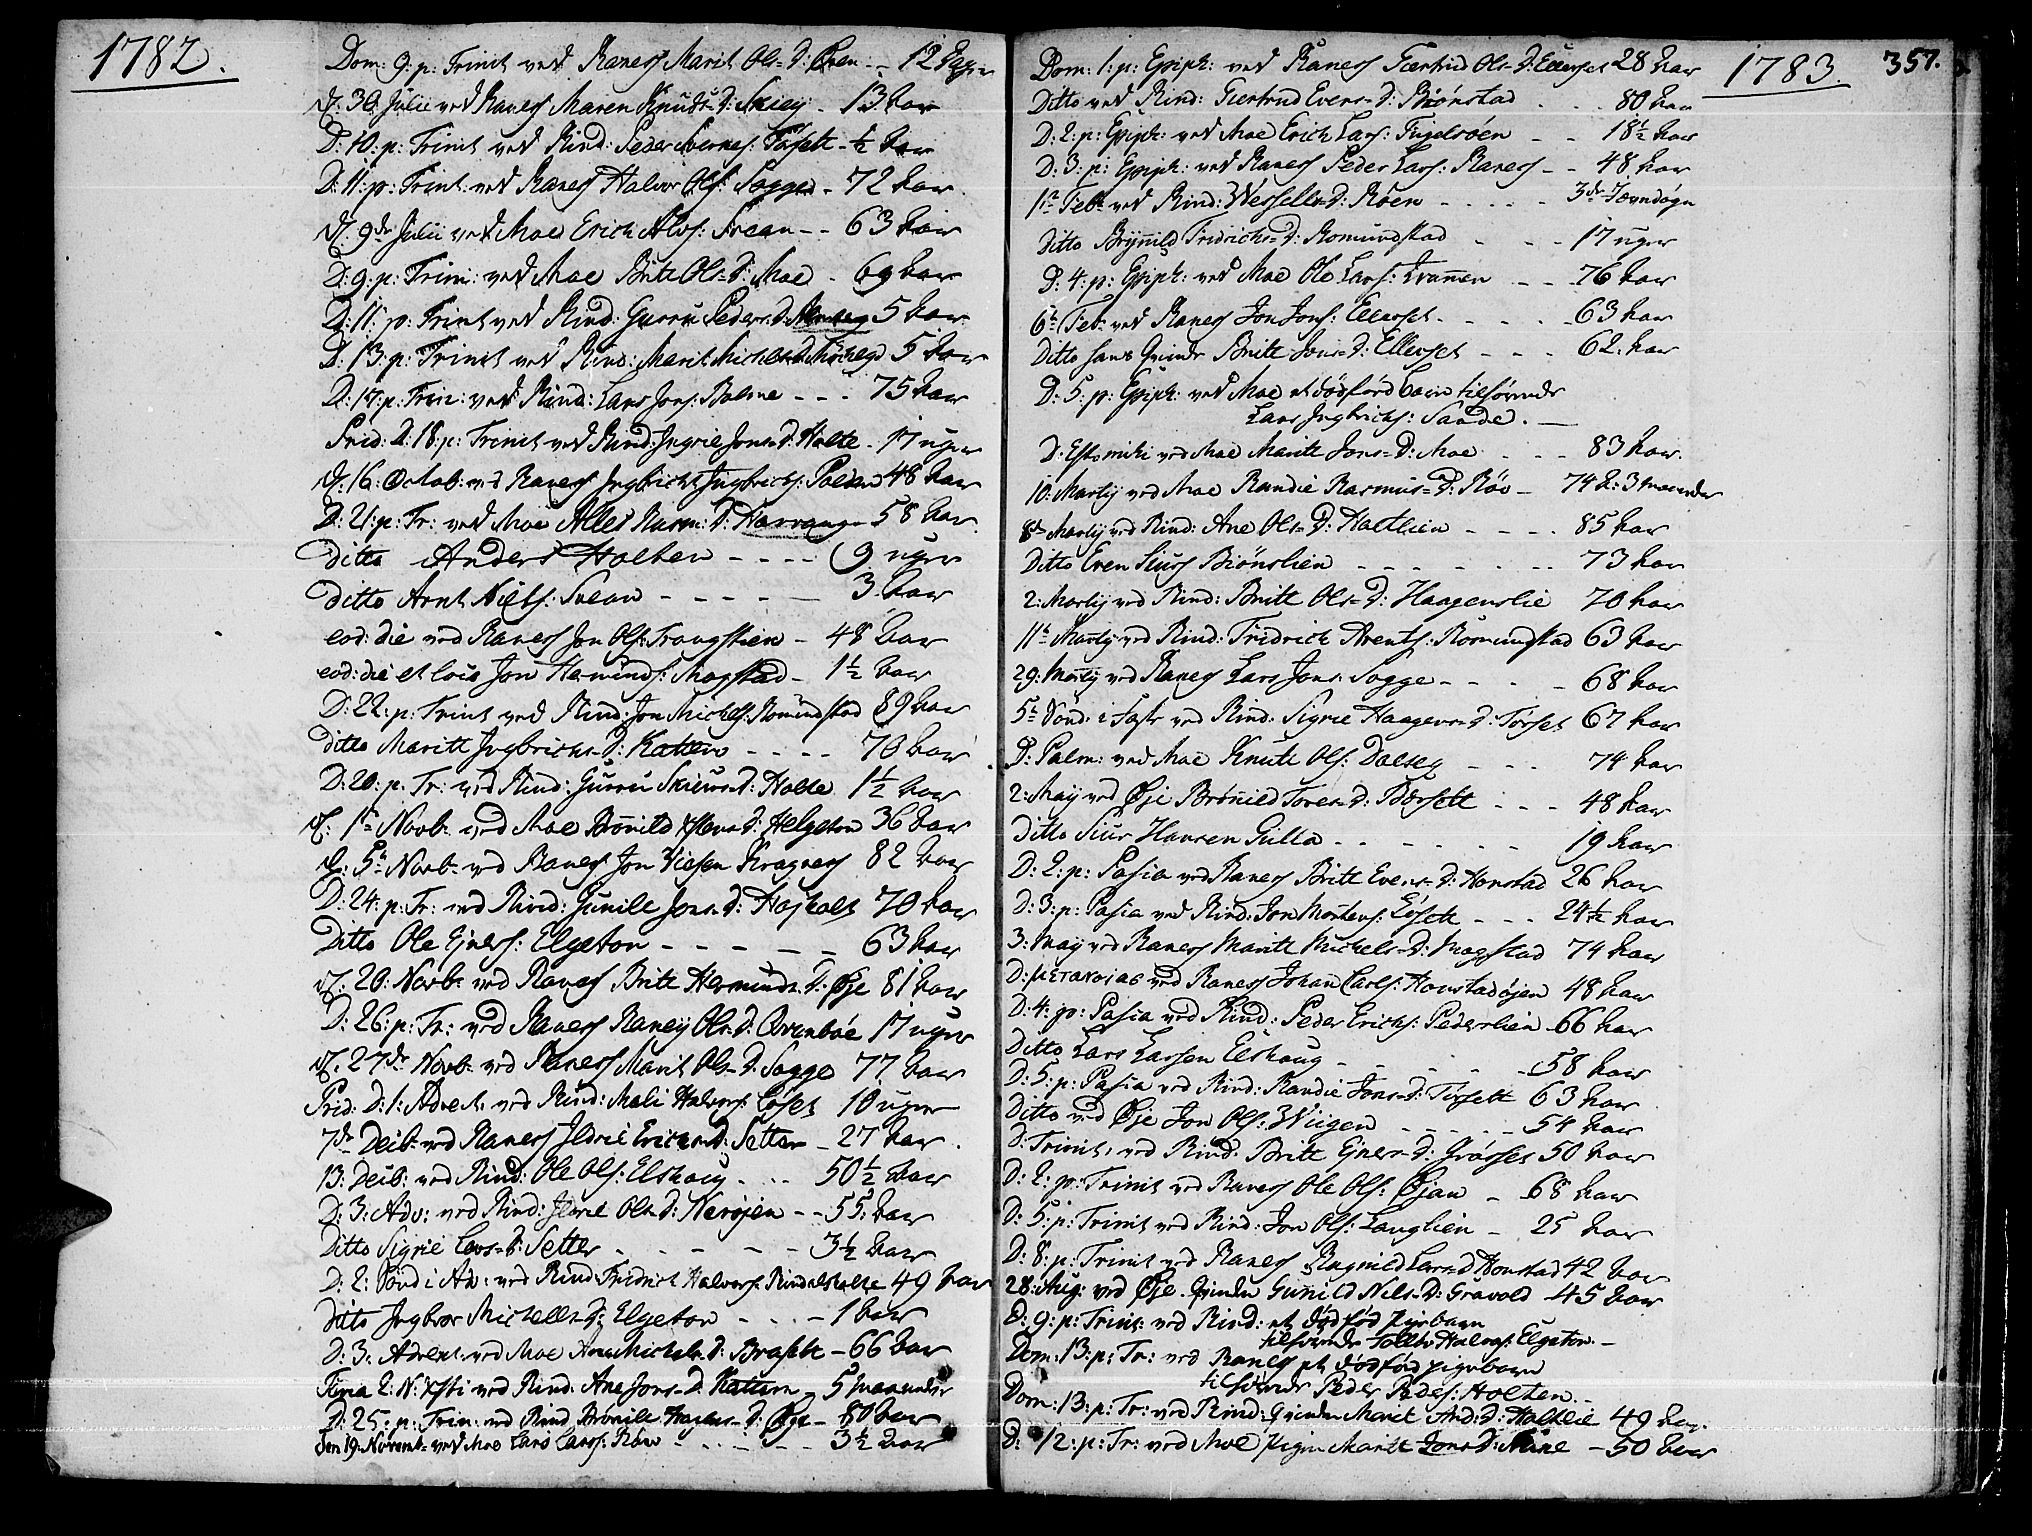 1782.
Dom: 9: p: Trinit ved Ranes Marit Ols-D: Øien - 12 Dage
d: 30 Julii ved Ranes Maren Knuds-D: Skiey - 13 aar
D: 10: p: Trinit ved Rind: Peder Sivers: Fosseth - ½ aar
D: 11: p: Trinit: ved Ranes Halvor Ols: Sogge - 72 aar
d: 9de Julii ved Moe Erich Alvs: Svean - - 63 aar
D: 9: p: Trin: ved Moe Britt Ols-D: Moe - 69 aar
D: 11: p: Trinit ved Rind: Gurru Peders-D: 5 aar
D: 13: p: Trinit ved Rind: Marit Michels-D: 5 aar
D: 17: p: Trin: ved Rind: Lars Jons: Bolme - - - 75 aar
Prid: D: 18: p: Trinit ved Rind: Ingrie Jons-D: Holte - 17 uger
d: 16: Octob: ved Ranes Ingbricht Ingbrichs: 48 aar
D: 21: p: Tr: ved Moe Rasm: D: Harvange 58 aar
Ditto Anders Holten - - - - 9 uger
Ditto Arnt Niels: Svean - - - - - 3 aar
eod: die ved Ranes Jon Ols: Trongstien - 48 aar
eod: die et loco Jon Hermunds: Mogstad - 1½ aar
D: 22: p: Trinit ved Rind: Jon Michels: Romundstad 89 aar
Ditto Maritt Ingbrichs-D: Kattem - - - - 70 aar
D: 20: p: Tr: ved Rind: Gurru Skiurs-D: Holte 1½ aar
d: 1te Novb: ved Moe Brønild D: Helgeton 36 aar
d: 5te Novb: ved Ranes Jon Kragnes 82 aar
D: 24: p: Tr: ved Rind: Gunild Jons-D: 70 aar
Ditto Ole Ejners: Elgeton - - - - - 63 aar
d: 20: Novb: ved Ranes Britt Hermunds-D: Øje 81 aar
D: 26: p: Tr: ved Ranes Raney Ols-D: Brunbøe 17 uger
d: 27de Novb: ved Ranes Marit Ols-D: Sogge 77 aar
Prid: D: 1: Advent: ved Rind: Mali Halvors: Løset 10 uger
7de Decb: ved Ranes Ildrie Erichs-D: Setter - 27 aar
13: Decb: ved Rind: Ole Ols: Elshoug - - - 50½ aar
D: 3: Adv: ved Rind: Ildrie Ols-D: Nerøjen - - 55: aar
Ditto Sigrie Lars-D: Setter - - - - - 3½ aar
D: 2: Sønd: i Adv: ved Rind: Fridrich Halvors: Rindalsholte 49 aar
Ditto Ingbor Michells-D: Elgeton - - - - 1 aar
D: 3: Advent: ved Moe Ane Michels-D: Brøseth - 66 aar
Feria 2: N: Xsti ved Rind: Ane Jons-D: Kattem - 5 maaneder
D: 25: p: Trin: ved Rind: Brønild D: Øye - 80 aar
Den 19: Novemb: ved Moe Lars Larss: Røen - - - - - 3½ aar
1783.
357.
Dom: 1: p: Epiph: ved Ranes Giertrud Ols-D: Ellevset 28 aar
Ditto ved Rind: Giertrud Evens-D: Biønstad - - - 80 aar
D: 2: p: Epiph: ved Moe Erich Lars: Fugelsøen - - 18½ aar
D: 3: p: Epiph: ved Ranes Peder Lars: Ranes - - 48 aar
1te Feb: ved Rind: Wessells-D: Røen - - - - - 3de Jevndøgn
Ditto Brynild Fridrichs-D: Romundstad - - - - 17 uger
D: 4: p: Epiph: ved Moe Ole Lars: - - - 76 aar
6te Feb: ved Ranes Jon Jons: Ellevset - - - - - 63 aar
Ditto hans Qvinde Britt Jons-D: Ellevset - - - 62: aar
D: 5: p: Epiph: ved Moe et dødfød barn tilhørende
Lars Ingbrichs: Sande. -
D: Esto mihi ved Moe Maritt Jons-D: Moe - - - - 83 aar.
10: Martij ved Moe Randie Rasmus-D: Røv - 74 2: 3 maaneder
8de Martij ved Rind: Ane Ols-D: Haltlien - - - - 85 aar
Ditto Even Siurs Biønslien - - - - - - - 73 aar
2: Martij ved Rind: Britt Ols-D: Haagenslie 70 aar
11te Martij ved Rind: Fridrich Arents: Romundstad 63 aar
29: Martij ved Ranes Lars Jons: Sogge - - - - 68 aar
5te Sønd: i Faste ved Rind: Sigrie Haagens-D: Torset 67 aar
D: Palm: ved Moe Knut Ols: Dalseg - - - 74 aar
2: May ved Øje Brønild Tores-D: Bærseth - - - 48 aar
Ditto Siur Hansen Gulla - - - - - - 19 aar
D: 2: p: Pasca ved Ranes Britt Evens-D: Honstad 26 aar
D: 3: p: Pasca ved Rind: Jon Mortens: Løseth - - - 24½ aar
3: May ved Ranes Maritt Michels-D: Mogstad 74 aar
D: μετανοίας ved Ranes Johan Carls: Honstadøjen 48 aar
D: 4: p: Pasca ved Rind: Peder Erichs: Pederslien 66 aar
Ditto Lars Larsen Elshoug - - - - - - 58 aar
D: 5: p: Pasca ved Rind: Randie Jons-D: Torseth 63 aar
Ditto ved Øje Jon Ols: Wiigen - - - - - 54 aar
D: Trinit: ved Rind: Britt Ejners-D: Grøsset 50 aar
D: 2: p: Trinit ved Ranes Ole Ols: Øjan - 68 aar
D: 5: p: Trinit ved Rind: Jon Ols: Langlien - 25 aar
D: 8: p: Trinit ved Ranes Ragnild Lars-D: Honstad 42 aar
28: Aug: ved Øje. Qvinden Gunild Nils-D: Gravold - 45 aar
D: 9: p: Trinit: ved Rind: et dødfød pigebarn
tilhørende Tollev Halvors: Elgeton. -
Dom: 13: p: Tr: ved Ranes et dødfød pigebarn
tilhørende Peder Peders: Holten. -
Dom: 13: p: Tr: ved Rind: Qvinden Marit And: D: Haltlie 49 aar.
D: 12: p: Tr: ved Moe pigen Maritt Jons-D: - 50 aar